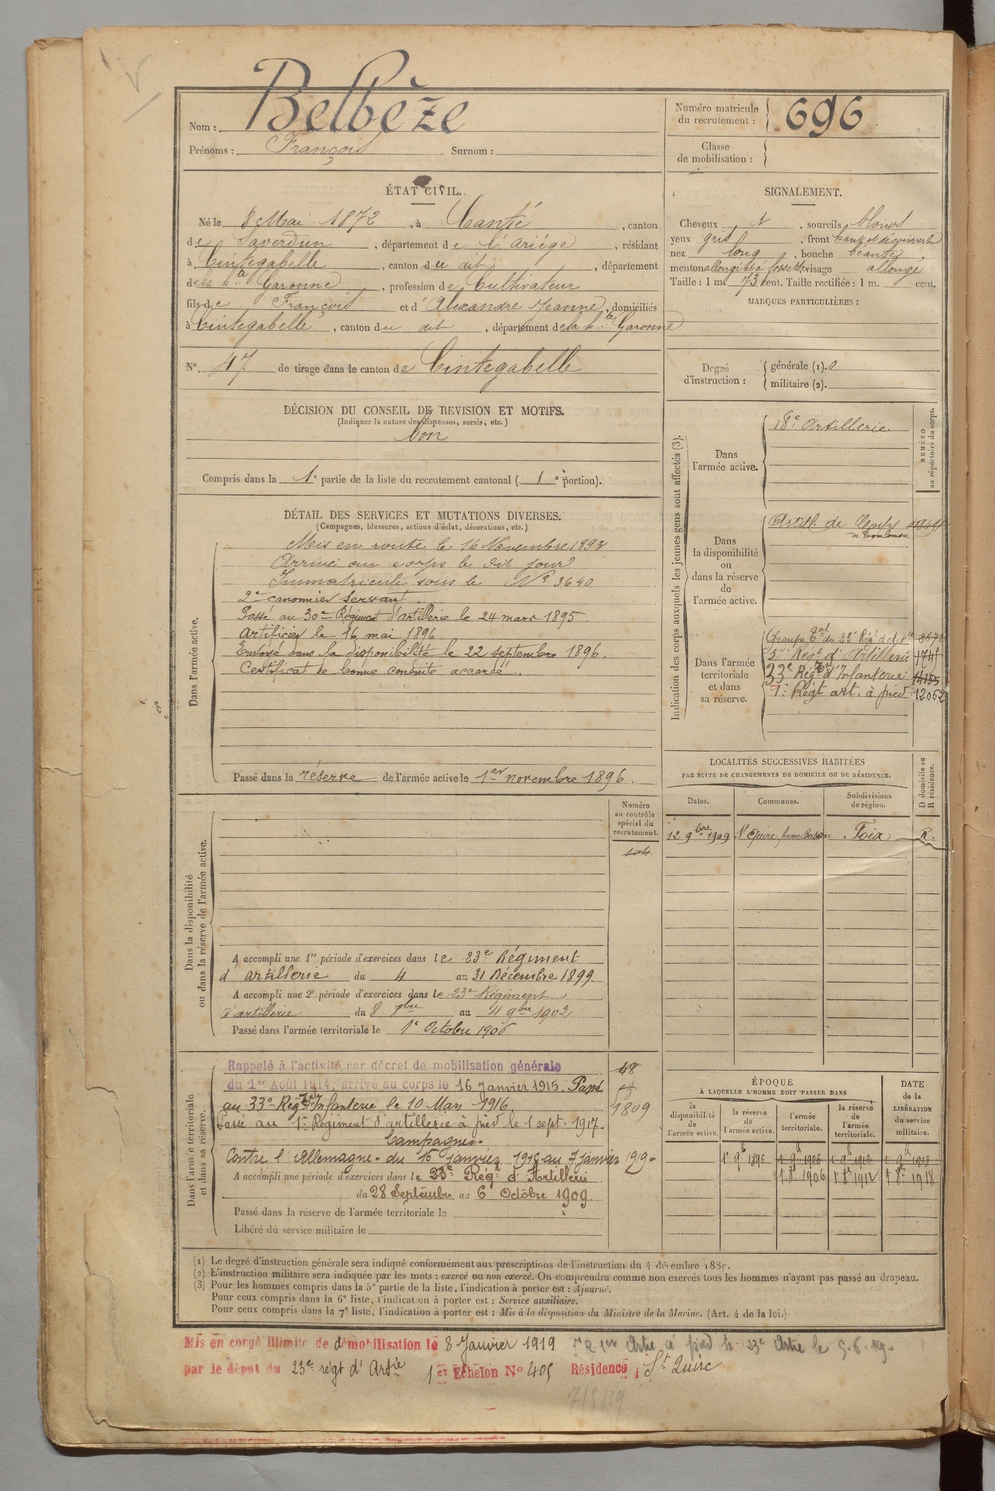 Nom : Belbèze
Prénoms : François Surnom :
Numéro matricule
du recrutement : 696
Classe
de mobilisation :
ÉTAT CIVIL.
Né le 8 Mai 1872, à Canté, canton
de Saverdun, département de l'Ariége, résidant
à Cintegabelle, canton du dit, département
de la hte Garonne, profession de Cultivateur
fils de François et d'Alexandre Jeanne, domiciliés
à Cintegabelle, canton du dit, département de la hte Garonne
N° 47 de tirage dans le canton de Cintegabelle
SIGNALEMENT.
Cheveux d, sourcils blonds
yeux gris, front haut et découvert
nez long, bouche béante,
menton allongé à fossette visage allongé
Taille : 1 m. 73 cent. Taille rectifiée : 1 m. cent.
MARQUES PARTICULIÈRES :
Degré
d'instruction :
générale (1). 0
militaire (2).
DÉCISION DU CONSEIL DE REVISION ET MOTIFS.
(Indiquer la nature des dispenses, sursis, etc.)
bon
Compris dans la 1e partie de la liste du recrutement cantonal ( 1e portion).
DÉTAIL DES SERVICES ET MUTATIONS DIVERSES.
(Campagnes, blessures, actions d'éclat, décorations, etc.)
Dans l'armée active.
Mis en route le 16 Novembre 1893
Arrivé au corps le dit jour
Immatriculé sous le N° 3640
2e canonnier servant.
Passé au 30e Régiment d'artillerie le 24 mars 1895
Artificier le 16 mai 1896
Envoyé dans la disponibilité le 22 septembre 1896.
Certificat de bonne conduite accordé.
Passé dans la réserve de l'armée active le 1er novembre 1896.
Indication des corps auxquels les jeunes gens sont affectés (3).
NUMÉRO
au répertoire du corps.
Dans
l'armée active.
18e Artillerie
Dans
la disponibilité
ou
dans la réserve
de
l'armée active.
Artill. de Corps
de Toulouse
Dans l'armée
territoriale
et dans
sa réserve.
Groupe tal du 23e Rég d'
5e Régt d'Artillerie 1741
33e Régt tal d'Infanterie 14155
1er Régt art. à pied 12062
LOCALITÉS SUCCESSIVES HABITÉES
PAR SUITE DE CHANGEMENTS DE DOMICILE OU DE RÉSIDENCE.
Dates. Communes. Subdivisions
de région. D domicile ou
R résidence.
12 9bre 1909 St Quirc, Foix R.
Numéro
au contrôle
spécial du
recrutement.
104
Dans la disponibilité
ou dans la réserve de l'armée active.
A accompli une 1re période d'exercices dans le 23e Régiment
d'artillerie du 4 au 31 Décembre 1899
A accompli une 2e période d'exercices dans le 23e Régiment
d'artillerie du 8 8bre au 4 9bre 1902
Passé dans l'armée territoriale le 1e Octobre 1906
Dans l'armée territoriale
et dans sa réserve.
Rappelé à l'activité par décret de mobilisation générale
du 1er Août 1914, arrivé au corps le 16 Janvier 1915. Passé
au 33e Rég tal Infanterie le 10 Mars 1916
Passé au 1er Régiment d'artillerie à pied le 1 sept. 1917.
Campagnes.
Contre l'Allemagne. du 16 janvier 1915 au 7 janvier 1919.
A accompli une période d'exercices dans le 23e Rég. d'Artillerie
du 28 Septembre au 6 Octobre 1909.
Passé dans la réserve de l'armée territoriale le
Libéré du service militaire le
48
1809
ÉPOQUE
À LAQUELLE L'HOMME DOIT PASSER DANS
DATE
de la
LIBÉRATION
du service
militaire.
la
disponibilité
de
l'armée active. la réserve
de
l'armée active. l'armée
territoriale. la réserve
de
l'armée
territoriale.
1er 9b 1896 1 9b 1906 1 9b 1912 1 9b 1918
1 8b 1906 1 8b 1912 1 8b 1918
(1) Le degré d'instruction générale sera indiqué conformément aux prescriptions de l'instruction du 4 décembre 1889.
(2) L'instruction militaire sera indiquée par les mots : exercé ou non exercé. On comprendra comme non exercés tous les hommes n'ayant pas passé au drapeau.
(3) Pour les hommes compris dans la 5e partie de la liste, l'indication à porter est : Ajourné.
Pour ceux compris dans la 6e liste, l'indication à porter est : Service auxiliaire.
Pour ceux compris dans la 7e liste, l'indication à porter est : Mis à la disposition du Ministre de la Marine. (Art. 4 de la loi.)
Mis en congé illimité de démobilisation le 8 Janvier 1919
par le dépôt du 23e régt d'Artie 1er Echelon N° 405 Résidence : St Quirc